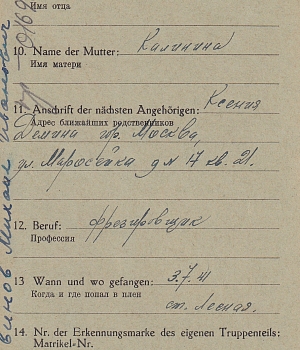 Имя отца
10. Name der Mutter: Калинина
Имя матери
11. Anschrift der nächsten Angehörigen: Ксения
Адрес ближайших родственников
Демина гр. Москва,
ул. Маросейка д 17 кв. 21.
12. Beruf: фрезировщик
Профессия
13 Wann und wo gefangen: 3.7.41
Когда и где попал в плен
ст. Лесная.
14. Nr. der Erkennungsmarke des eigenen Truppenteils:
Matrikel-Nr.
Михаил Иванович